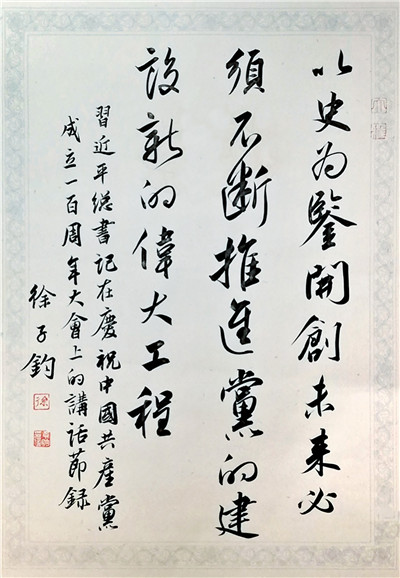 以史為鑒開創未来必
須不斷推進黨的建
設新的偉大工程
習近平總書記在慶祝中國共產黨
成立一百周年大會上的講話節録
徐子鈞
徐